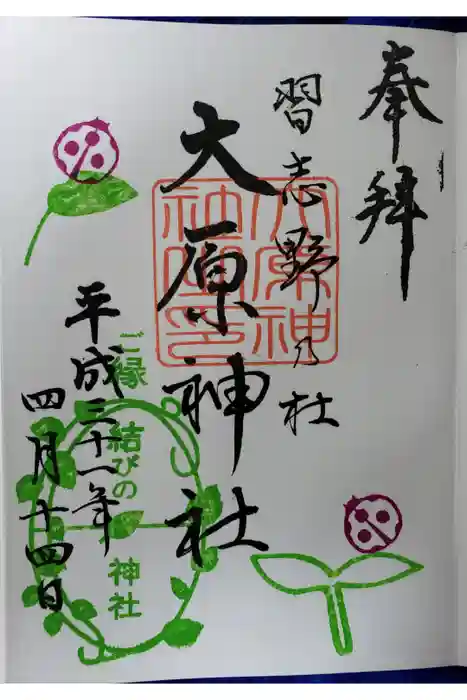 奉拝
習志野乃杜
大原神社
大原神社璽印
平成三十一年
四月十四日
ご縁結びの神社